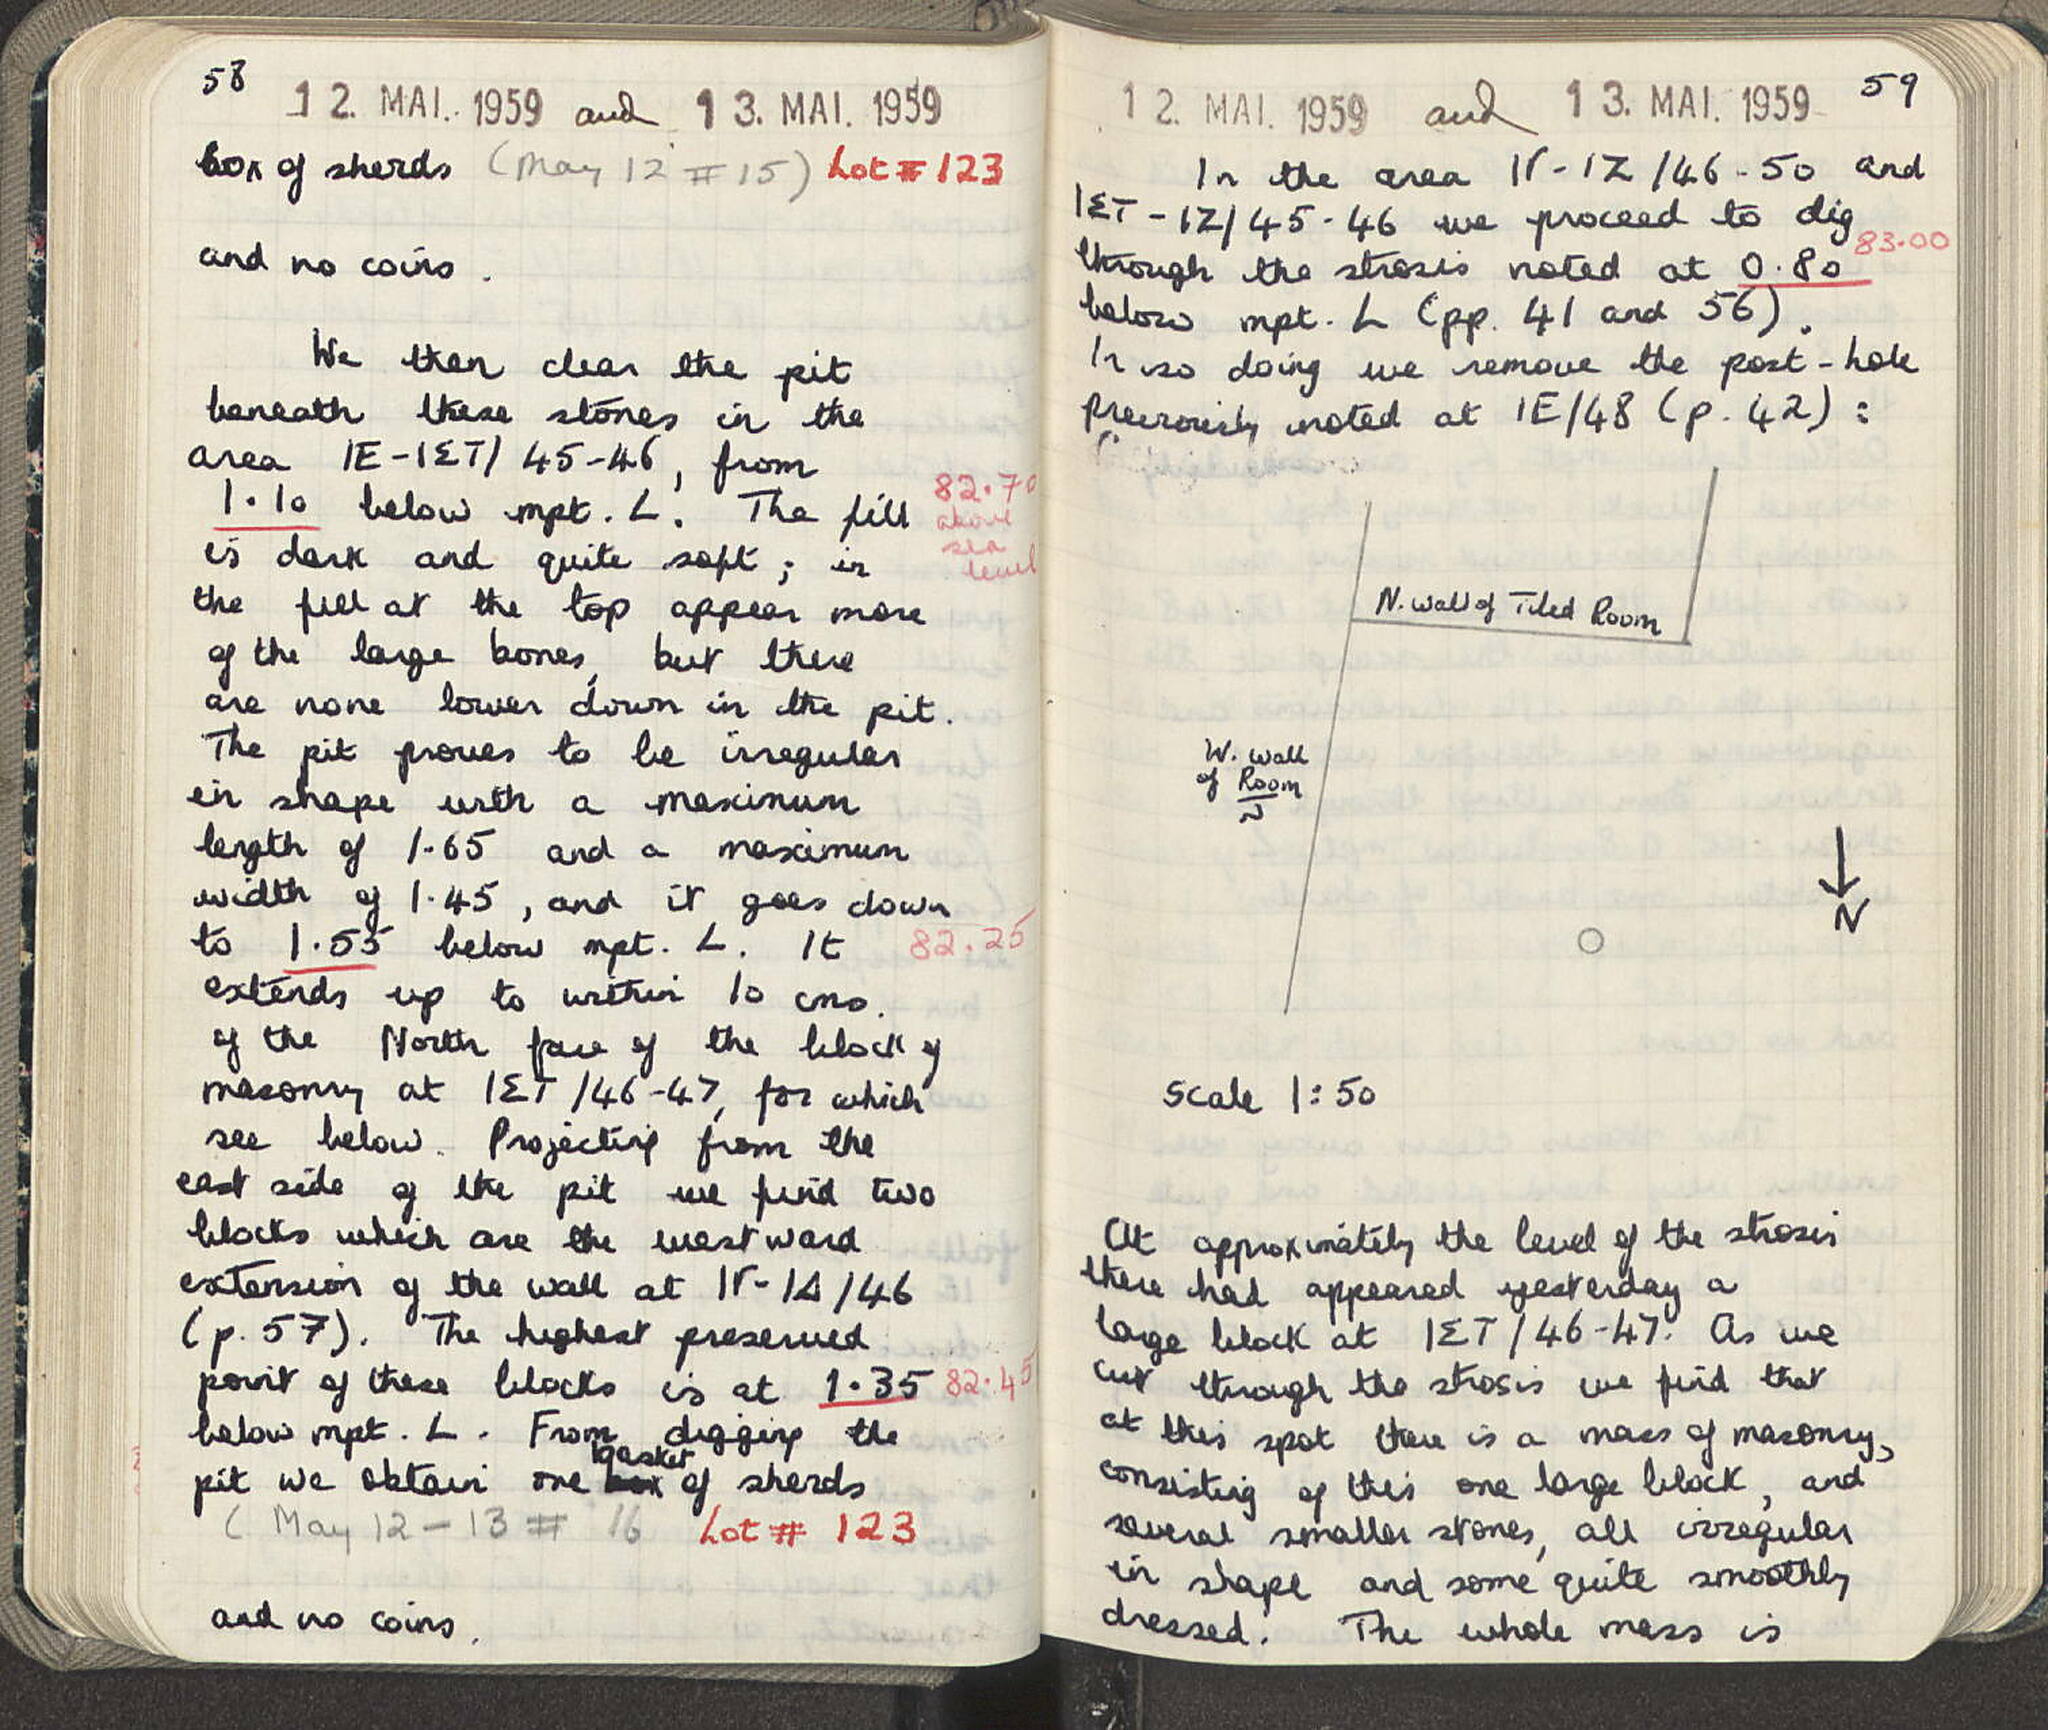 58
12. MAI. 1959 and 13. MAI. 1959
box of sherds (May 12 #15) Lot #123
and no coins.
We then clear the pit
beneath these stones in the
area IE-IΣT/45-46, from
1.10 below mpt. L. The fill
82.70
above
sea
level
is dark and quite soft; in
the fill at the top appear more
of the large bones, but there
are none lower down in the pit.
The pit proves to be irregular
in shape with a maximum
length of 1.65 and a maximum
width of 1.45, and it goes down
to 1.55 below mpt. L. It 82.25
extends up to within 10 cms.
of the North face of the block of
masonry at IΣT/46-47, for which
see below. Projecting from the
east side of the pit we find two
blocks which are the westward
extension of the wall at IΓ-IΔ/46
(p. 57). The highest preserved
point of these blocks is at 1.35 82.45
below mpt. L. From digging the
pit we obtain one basket of sherds
(May 12-13 # 16 Lot # 123
and no coins.
59
12. MAI. 1959 and 13. MAI. 1959
In the area IΓ-IZ/46-50 and
IΣT-IZ/45-46 we proceed to dig
through the strosis noted at 0.80 83.00
below mpt. L (pp. 41 and 56).
In so doing we remove the post-hole
previously noted at IE/48 (p. 42):
N. Wall of Tiled Room
W. Wall
of Room
N
N
Scale 1:50
At approximately the level of the strosis
there had appeared yesterday a
large block at IΣT/46-47. As we
cut through the strosis we find that
at this spot there is a mass of masonry,
consisting of this one large block, and
several smaller stones, all irregular
in shape and some quite smoothly
dressed. The whole mass is